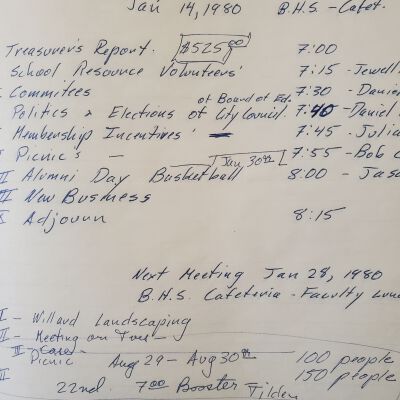 Jan 14, 1980 B.H.S. - Cafet.
Treasurer's Report. $525.00 7:00
School Resource Volunteers' 7:15 - Jewell
Commitees 7:30 - Daniel
of Board of Ed.
Politics & Elections of City Council. 7:40 - Daniel
Membership Incentives' 7:45 - Julia
Picnic's - Jan, 30th 7:55 - Bob
II Alumni Day Basketball 8:00 - Jaso
III New Business
X Adjourn 8:15
Next Meeting Jan 28, 1980
B.H.S. Cafeteria - Faculty
I - Willard Landscaping
II - Meeting on Tues -
III - 
Picnic Aug 29 - Aug 30th 100 people
III 150 people
22nd 7:00 Booster Tilden